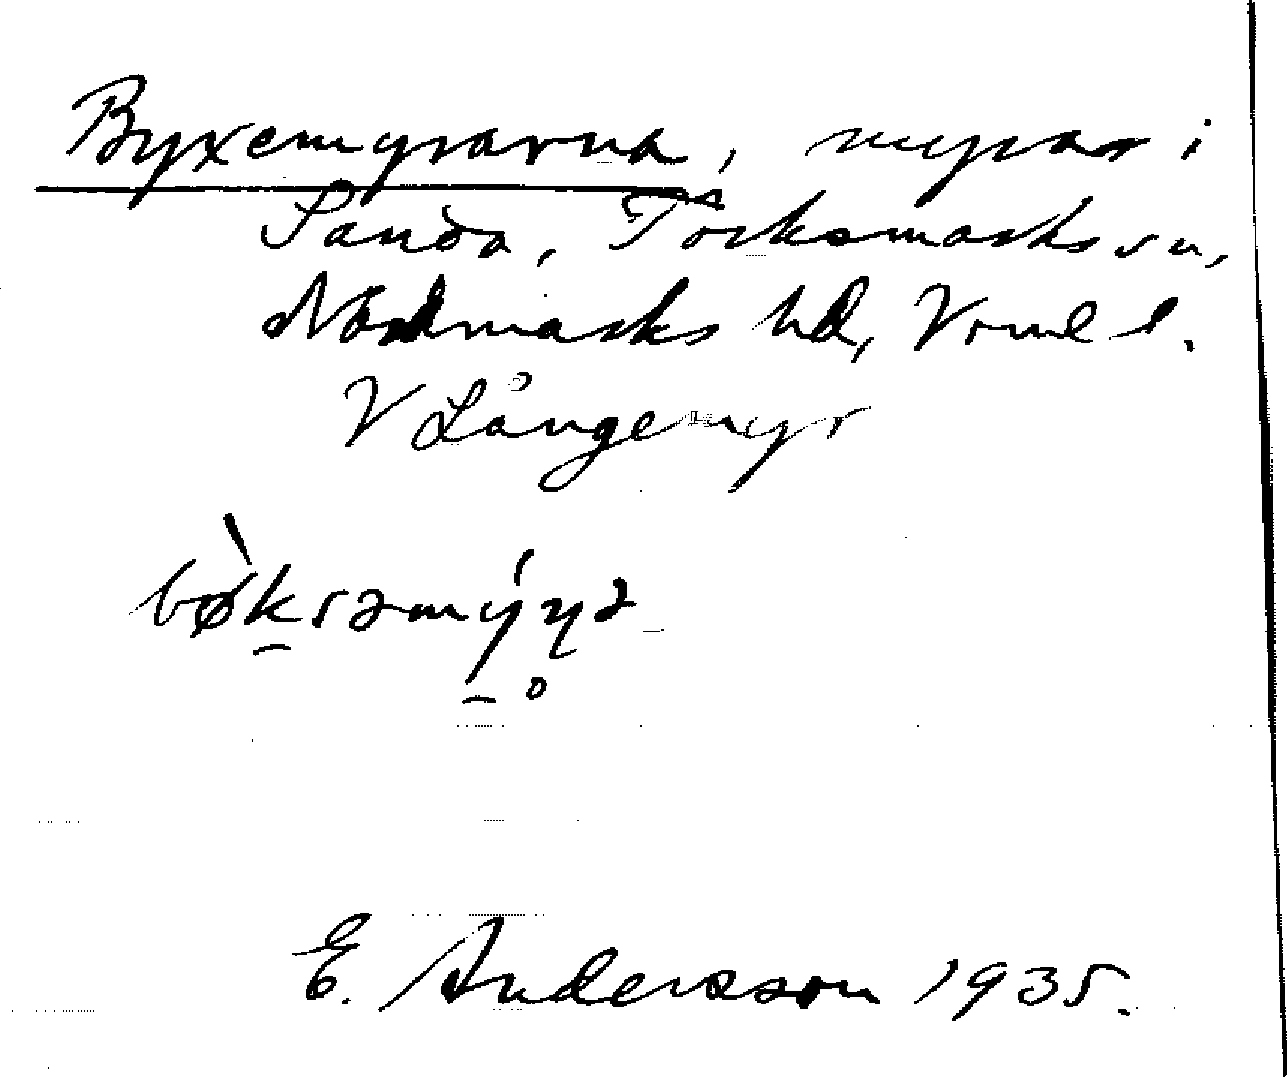 Byxemyrarna, myrar i
Sanda, Töcksmarks sn,
Nordmarks hd, Vrml l.
V Långemyr
bø̀ksəmýṇə
E. Andersson 1935.